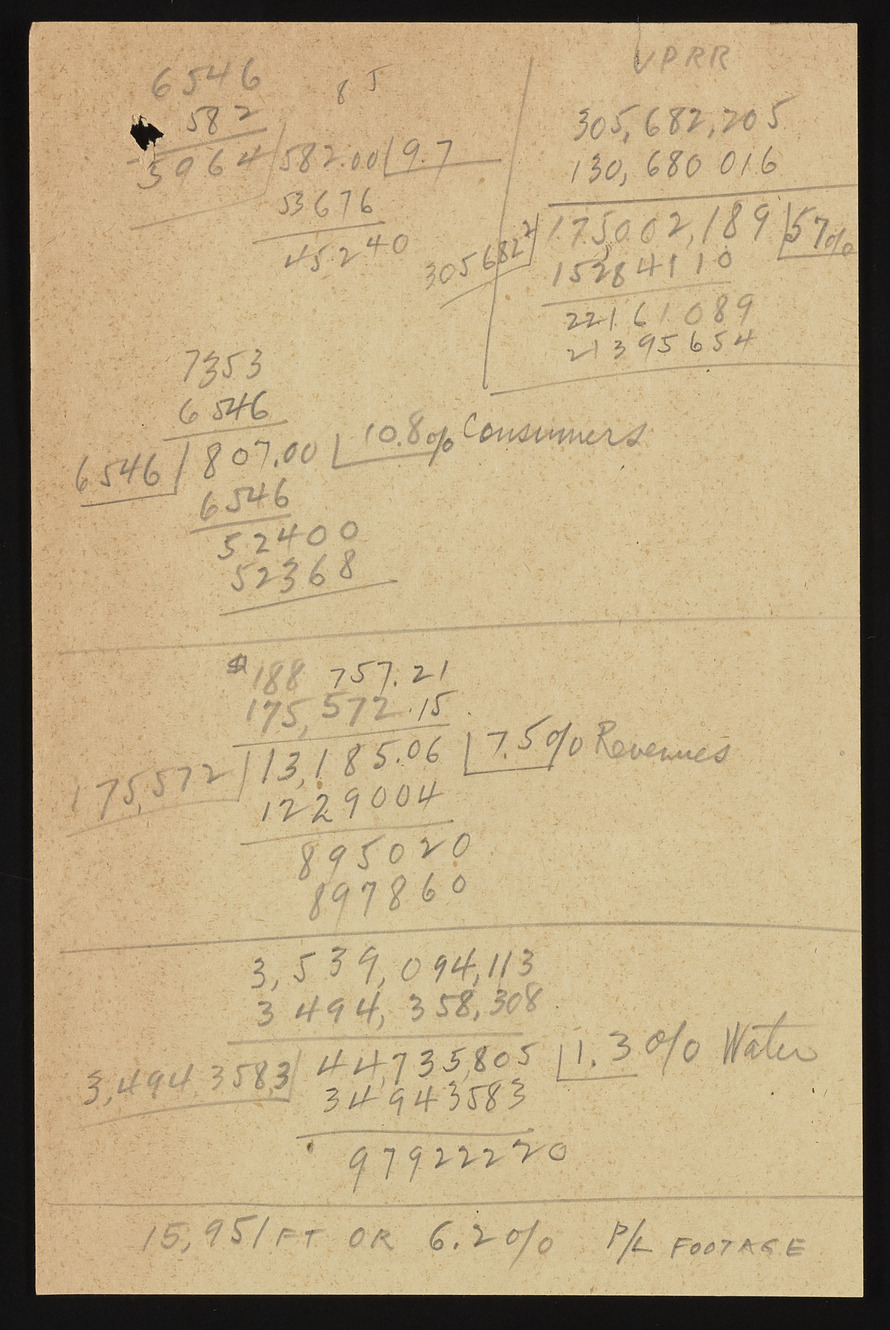 6546
582
5964 582.00 9.7
53676
45240
85
UPRR
305,682,205
130,680 016
3056822 175002,189 57%
15284110
22161089
21395654
7353
6546
6546 807.00 10.8% Consumers
6546
52400
52368
$188 757.21
175,572.15
175,572 13,185.06 7.5% Revenues
1229004
895020
897860
3,539,094,113
3 494,358,308
3,494 3583 44,735,805 1.3% Water
34943583
97922220
15,951 FT OR 6.2% P/L FOOTAGE